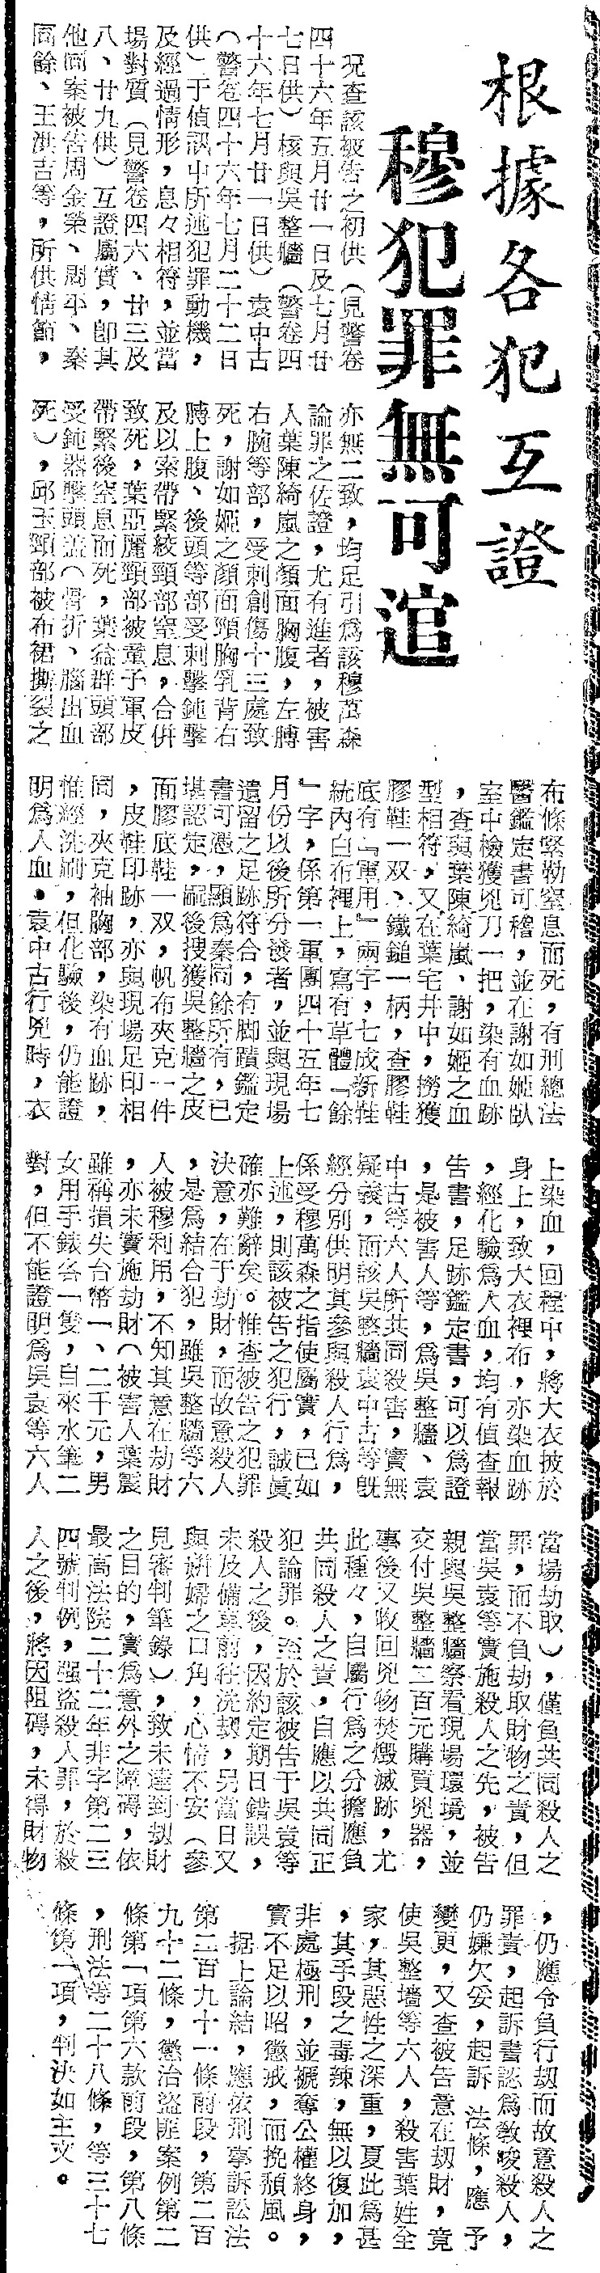 根據各犯互證
穆犯罪無可逭
況查該被告之初供（見警卷
四十六年五月廿一日及七月廿
七日供）核與吳整牆（警卷四
十六年七月廿一日供）袁中古
（警卷四十六年七月二十二日
供）于偵訊中所述犯罪動機，
及經過情形，息々相符，並當
場對質（見警卷四六、廿三及
八、廿九供）互證屬實，即其
他同案被告周金榮、周平、秦
同餘、王洪吉等，所供情節，
亦無二致，均足引為該穆萬森
論罪之佐證，尤有進者，被害
人葉陳綺嵐之顏面胸腹，左膊
右腕等部，受刺創傷十三處致
死，謝如姬之顏面頸胸乳背右
膊上腹、後頭等部受刺擊鈍擊
及以索帶緊絞頸部窒息，合併
致死，葉亞麗頸部被童子軍皮
帶緊後窒息而死，葉益群頭部
受鈍器擊頭蓋（骨折、腦出血
死），邱玉頸部被布裙撕裂之
布條緊勒窒息而死，有刑總法
醫鑑定書可稽，並在謝如姬臥
室中檢獲兇刀一把，染有血跡
，查與葉陳綺嵐、謝如姬之血
型相符，又在葉宅井中，撈獲
膠鞋一双、鐵鎚一柄，查膠鞋
底有『軍用』兩字，七成新鞋
統內白布裡上，寫有草體『餘
』字，係第一軍團四十五年七
月份以後所分發者，並與現場
遺留之足跡符合，有脚蹟鑑定
書可憑，顯為秦同餘所有，已
堪認定，嗣後搜獲吳整牆之皮
面膠底鞋一双，帆布夾克一件
，皮鞋印跡，亦與現場足印相
同，夾克袖胸部，染有血跡，
惟經洗刷，但化驗後，仍能證
明為人血。袁中古行兇時，衣
上染血，回程中，將大衣披於
身上，致大衣裡布，亦染血跡
，經化驗為人血，均有偵查報
告書，足跡鑑定書，可以為證
，是被害人等，為吳整牆、袁
中古等六人所共同殺害，實無
疑義，而該吳整牆袁中古等既
經分別供明其參與殺人行為，
係受穆萬森之指使屬實，已如
上述，則該被告之犯行，誠眞
確亦難辭矣。惟查被告之犯罪
決意，在于劫財，而故意殺人
，是為結合犯，雖吳整牆等六
人被穆利用，不知其意在劫財
，亦未實施劫財（被害人葉震
雖稱損失台幣一、二千元，男
女用手錶各一隻，自來水筆二
對，但不能證明為吳袁等六人
當場劫取），僅負共同殺人之
罪，而不負劫取財物之責，但
當吳袁等實施殺人之先，被告
親與吳整牆察看現場環境，並
交付吳整牆二百元購買兇器，
事後又收回兇物焚燬滅跡，尤
此種々，自屬行為之分擔應負
共同殺人之責，自應以共同正
犯論罪。至於該被告于吳袁等
殺人之後，因約定期日錯誤，
未及備車前往洗劫，另當日又
與姘婦之口角，心情不安（參
見審判筆錄），致未達到刼財
之目的，實為意外之障碍，依
最高法院二十二年非字第二三
四號判例，强盜殺人罪，於殺
人之後，將因阻碍，未得財物
，仍應令負行刼而故意殺人之
罪責，起訴書認為教唆殺人，
仍嫌欠妥，起訴法條，應予
變更，又查被告意在刼財，竟
使吳整墻等六人，殺害葉姓全
家，其惡性之深重，夏此為甚
，其手段之毒辣，無以復加，
非處極刑，並褫奪公權終身，
實不足以昭懲戒，而挽頹風。
据上論結，應依刑事訴訟法
第二百九十一條前段，第二百
九十二條，懲治盜匪案例第二
條第一項第六款前段，第八條
，刑法等二十八條，等三十七
條第一項，判決如主文。